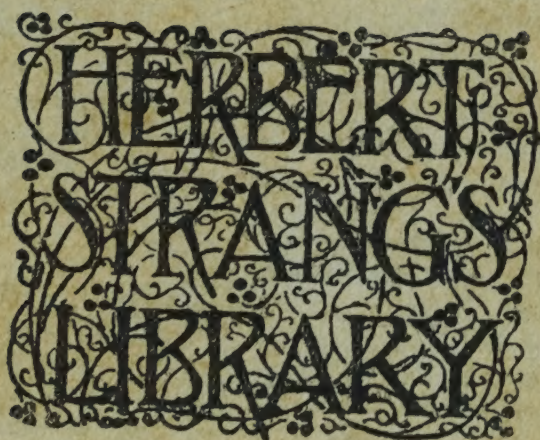 HERBERT
STRANGS
LIBRARY